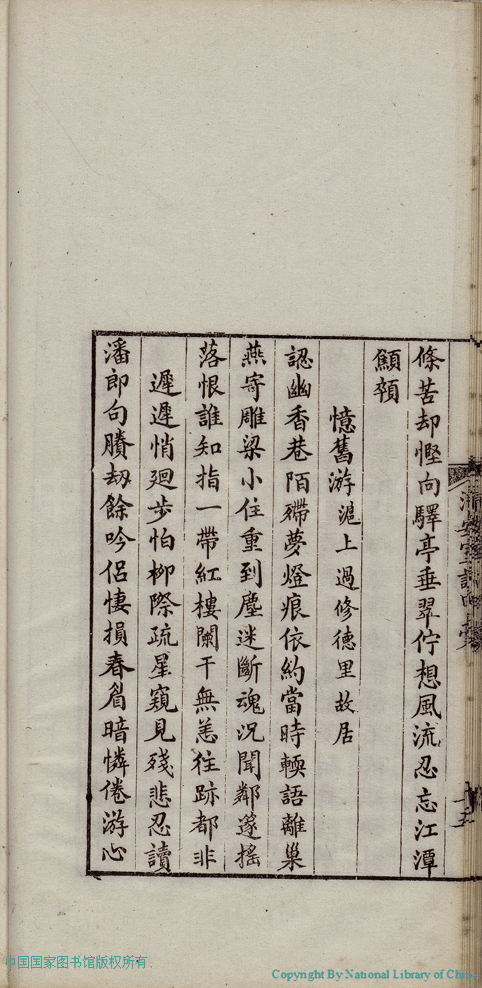 條苦却慳向驛亭垂翠佇想風流忍忘江潭
顦顇
憶舊游 滬上過修德里故居
認幽香巷陌殢夢燈痕依約當時輭語離巢
燕寄雕梁小住重到塵迷斷魂况聞鄰邃搖
落恨誰知指一帶紅樓闌干無恙往跡都非
遲遲悄廻步怕栁際疏星窺見殘悲忍讀
潘郎句賸劫餘吟侣悽損春睂暗憐倦游心
詩
十五
中国国家图书馆版权所有.
Copyright By National Library of China